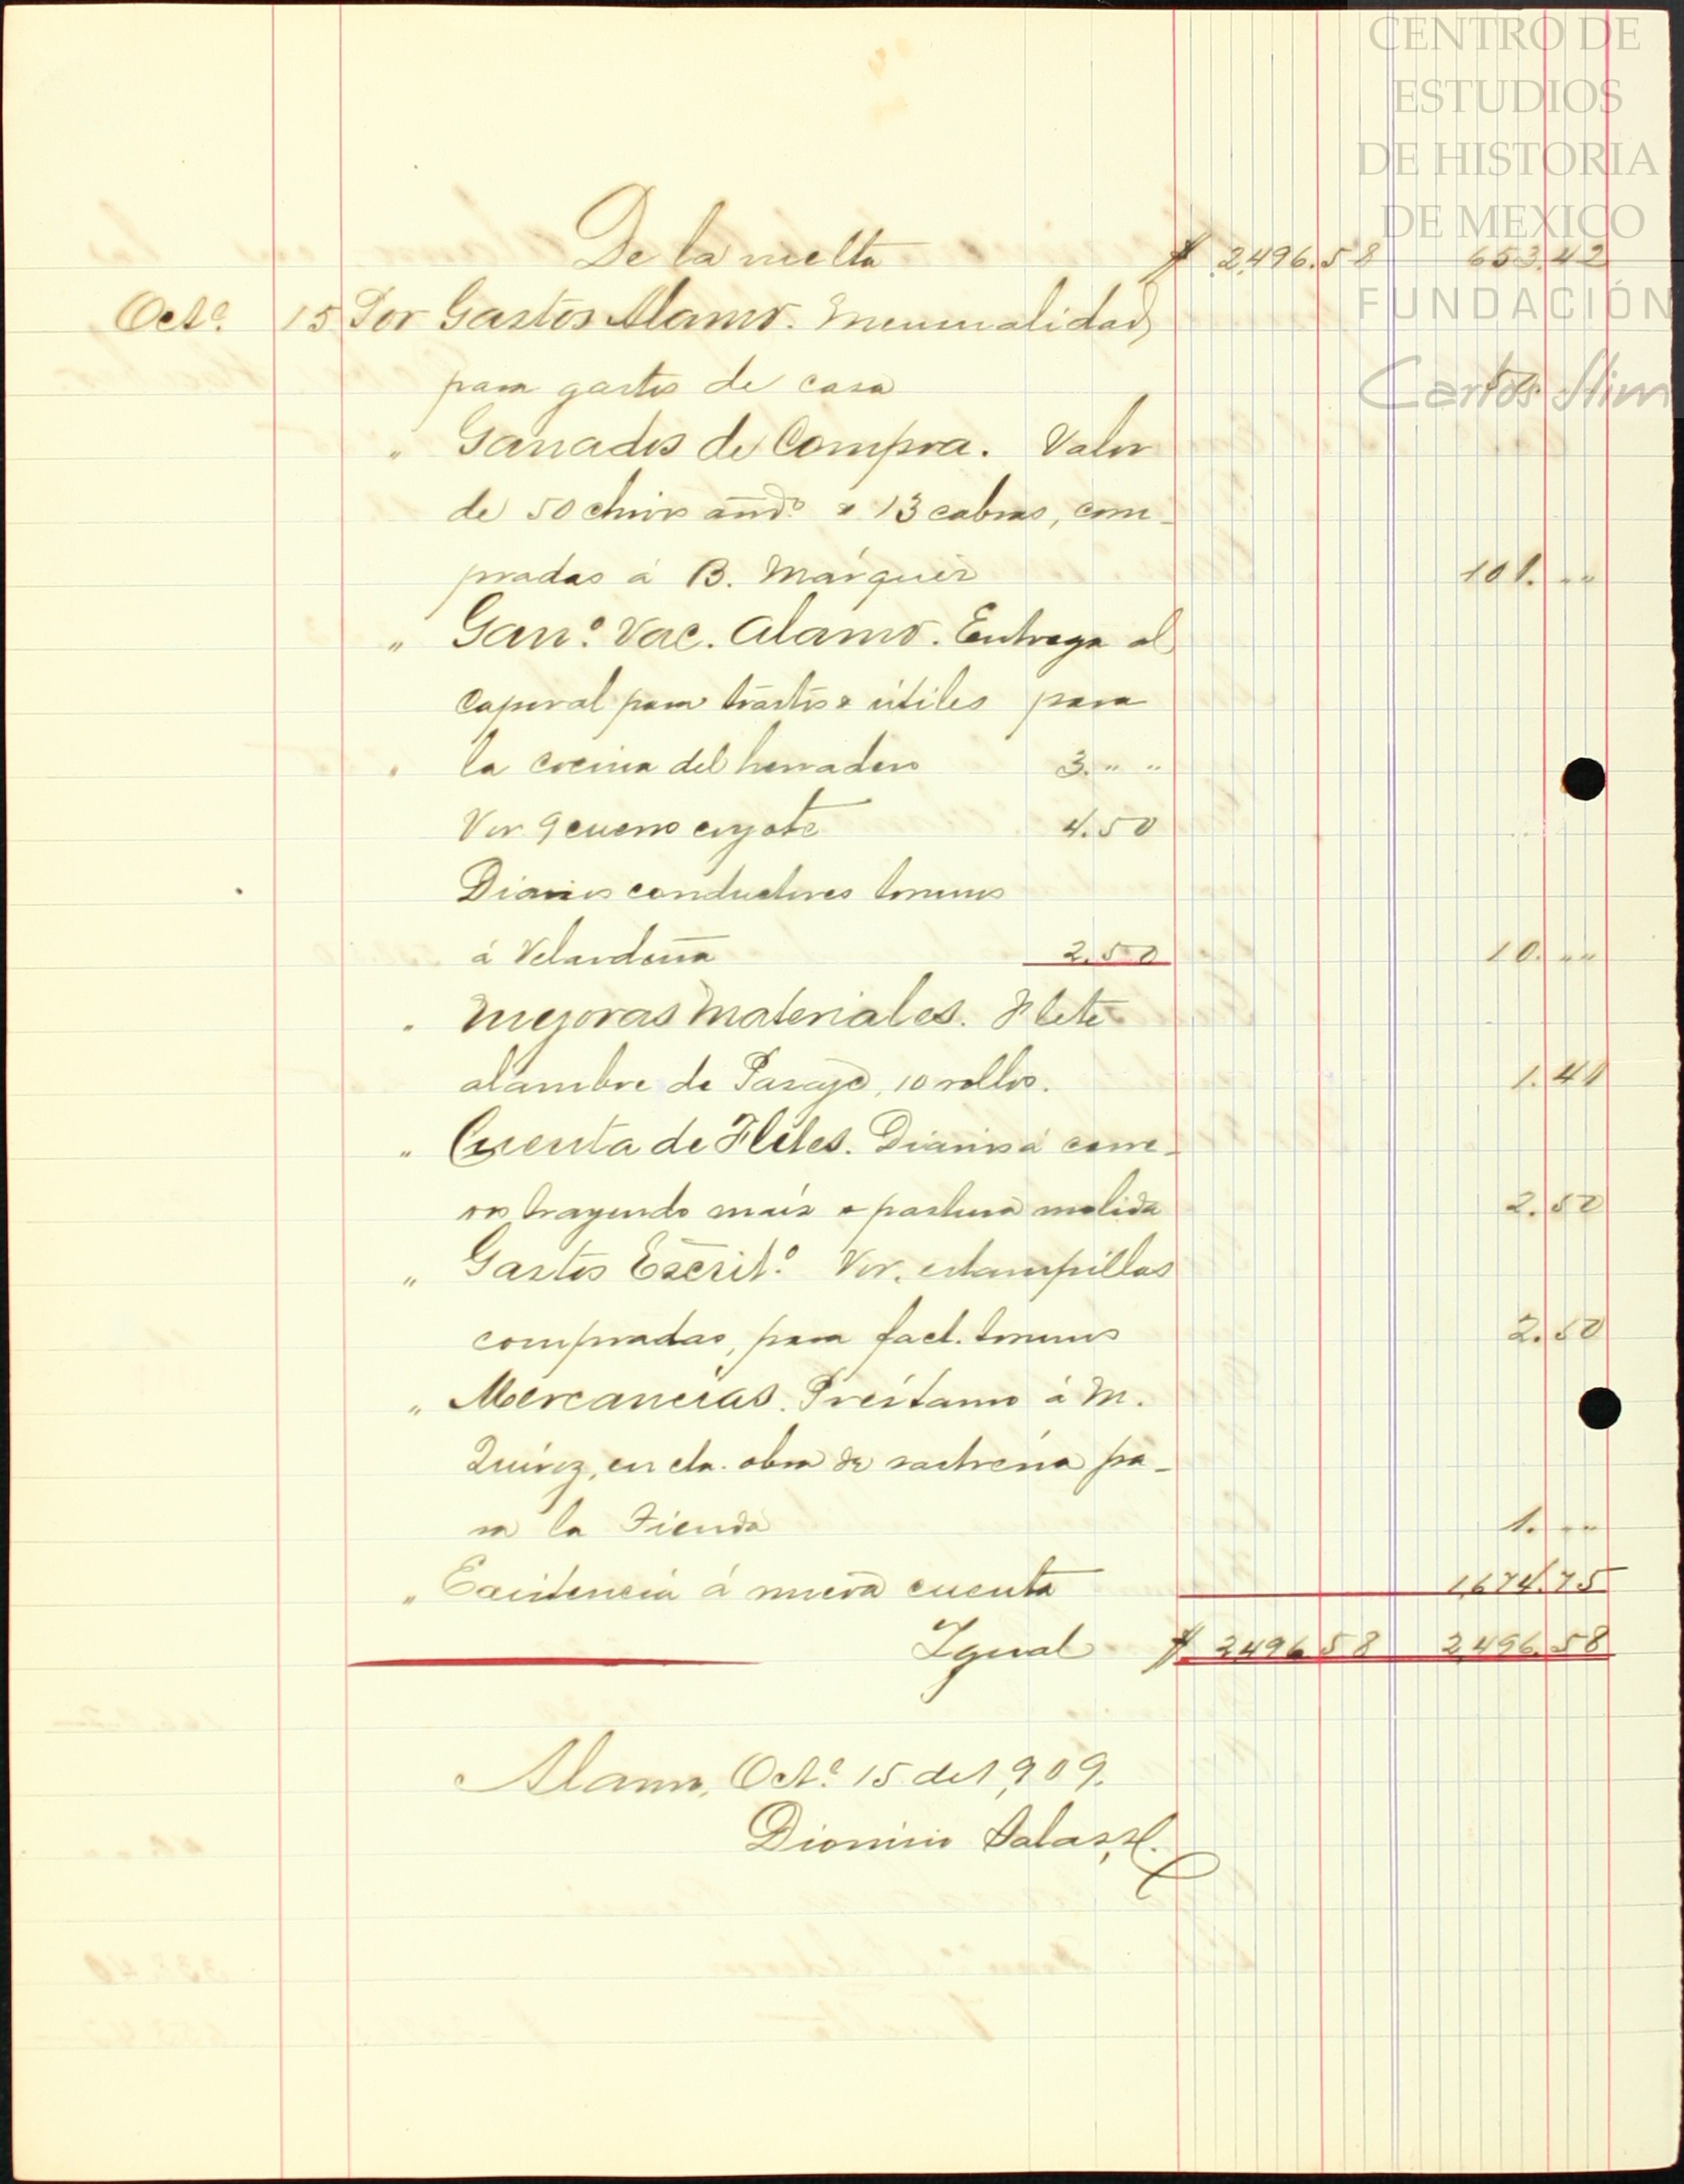 CENTRO DE
ESTUDIOS
DE HISTORIA
DE MEXICO
FUNDACIÓN
Carlos Slim
De la vuelta $ 2,496.58 653.42
Octe. 15 Por Gastos Alamo. Mensualidad
para gastos de casa 50.
" Ganados de Compra. Valor
de 50 chivos años. y 13 cabras, com-
pradas á B. Márquez 101. " "
" Gano. Vac. Alamo. Entrega al
Caporal para trastos y útiles para
la cocina del herradero 3. " "
Vor 9 cueros coyote 4.50
Diarios conductores toruns
á Velardeña 2.50 10. " "
" Mejoras Materiales. Flete
alambre de Pasaje, 10 rollos. 1.41
" Cuenta de Fletes. Diarios á carre-
ros trayendo maíz y pastura molida 2.50
" Gastos Escrito. Vor. estampillas
compradas, para fact. toruns 2.50
" Mercancías. Préstamo á M.
Quiroz, en cta. obra de sastrería pa-
ra la Tienda 1. " "
" Existencia á nueva cuenta 1,674.75
Igual $ 2,496.58 2,496.58
Alamo, Octe. 15 de 1,909.
Dionisio Salas, H.